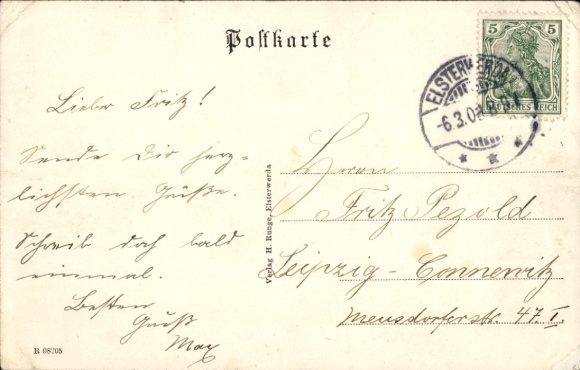 Postkarte
5 5
DEUTSCHES REICH
ELSTERWERDA
-6.3.0
Lieber Fritz!
Sende Dir herz-
lichsten Grüße.
Schreib doch bald
einmal.
Besten
Gruß
Max
Herrn
Fritz Pezold
Leipzig-Connewitz
Meusdorferstr. 47. I.
Verlag H. Runge, Elsterwerda
R 08205